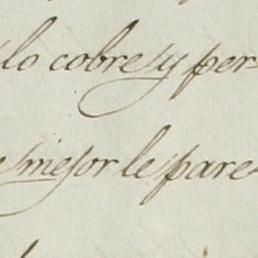 lo cobre y per-
mejor le pare-